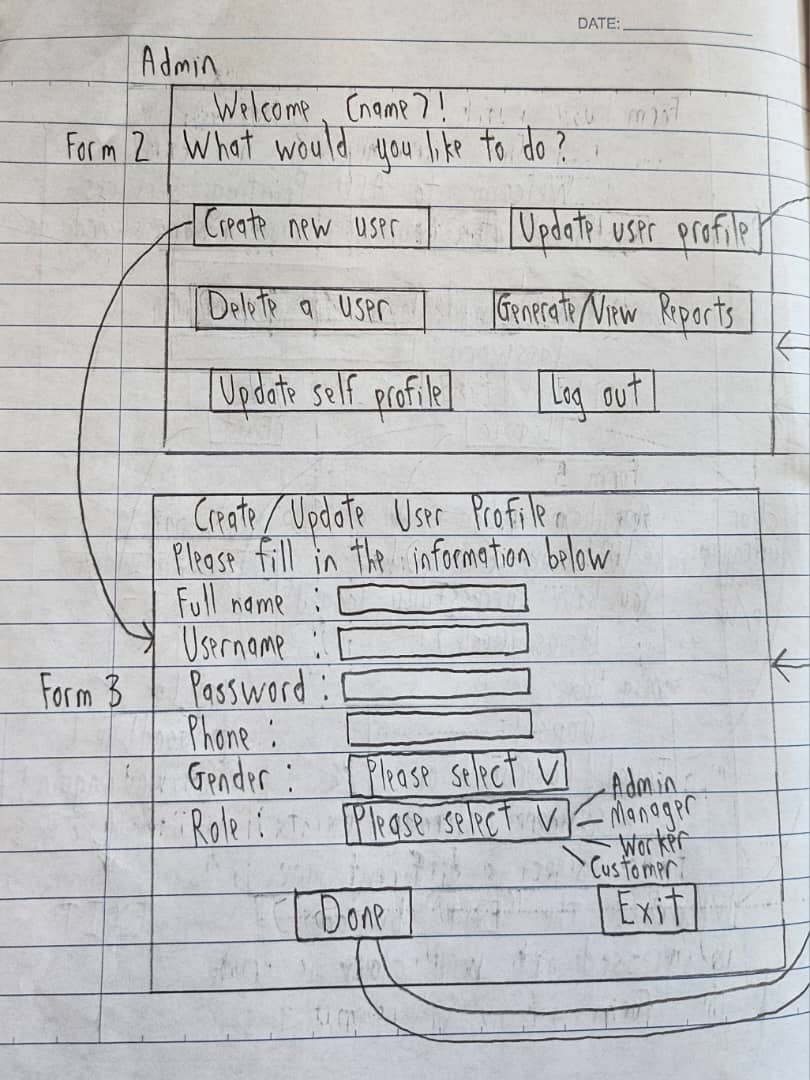 DATE:
Admin
Welcome, [name]!
Form 2 What would you like to do?
Create new user Update user profile
Delete a user Generate/View Reports
Update self profile Log out
Create/Update User Profile
Please fill in the information below.
Full name :
Username :
Form 3 Password :
Phone :
Gender : Please select V
Role : Please select V
Admin
Manager
Worker
Customer
Done Exit